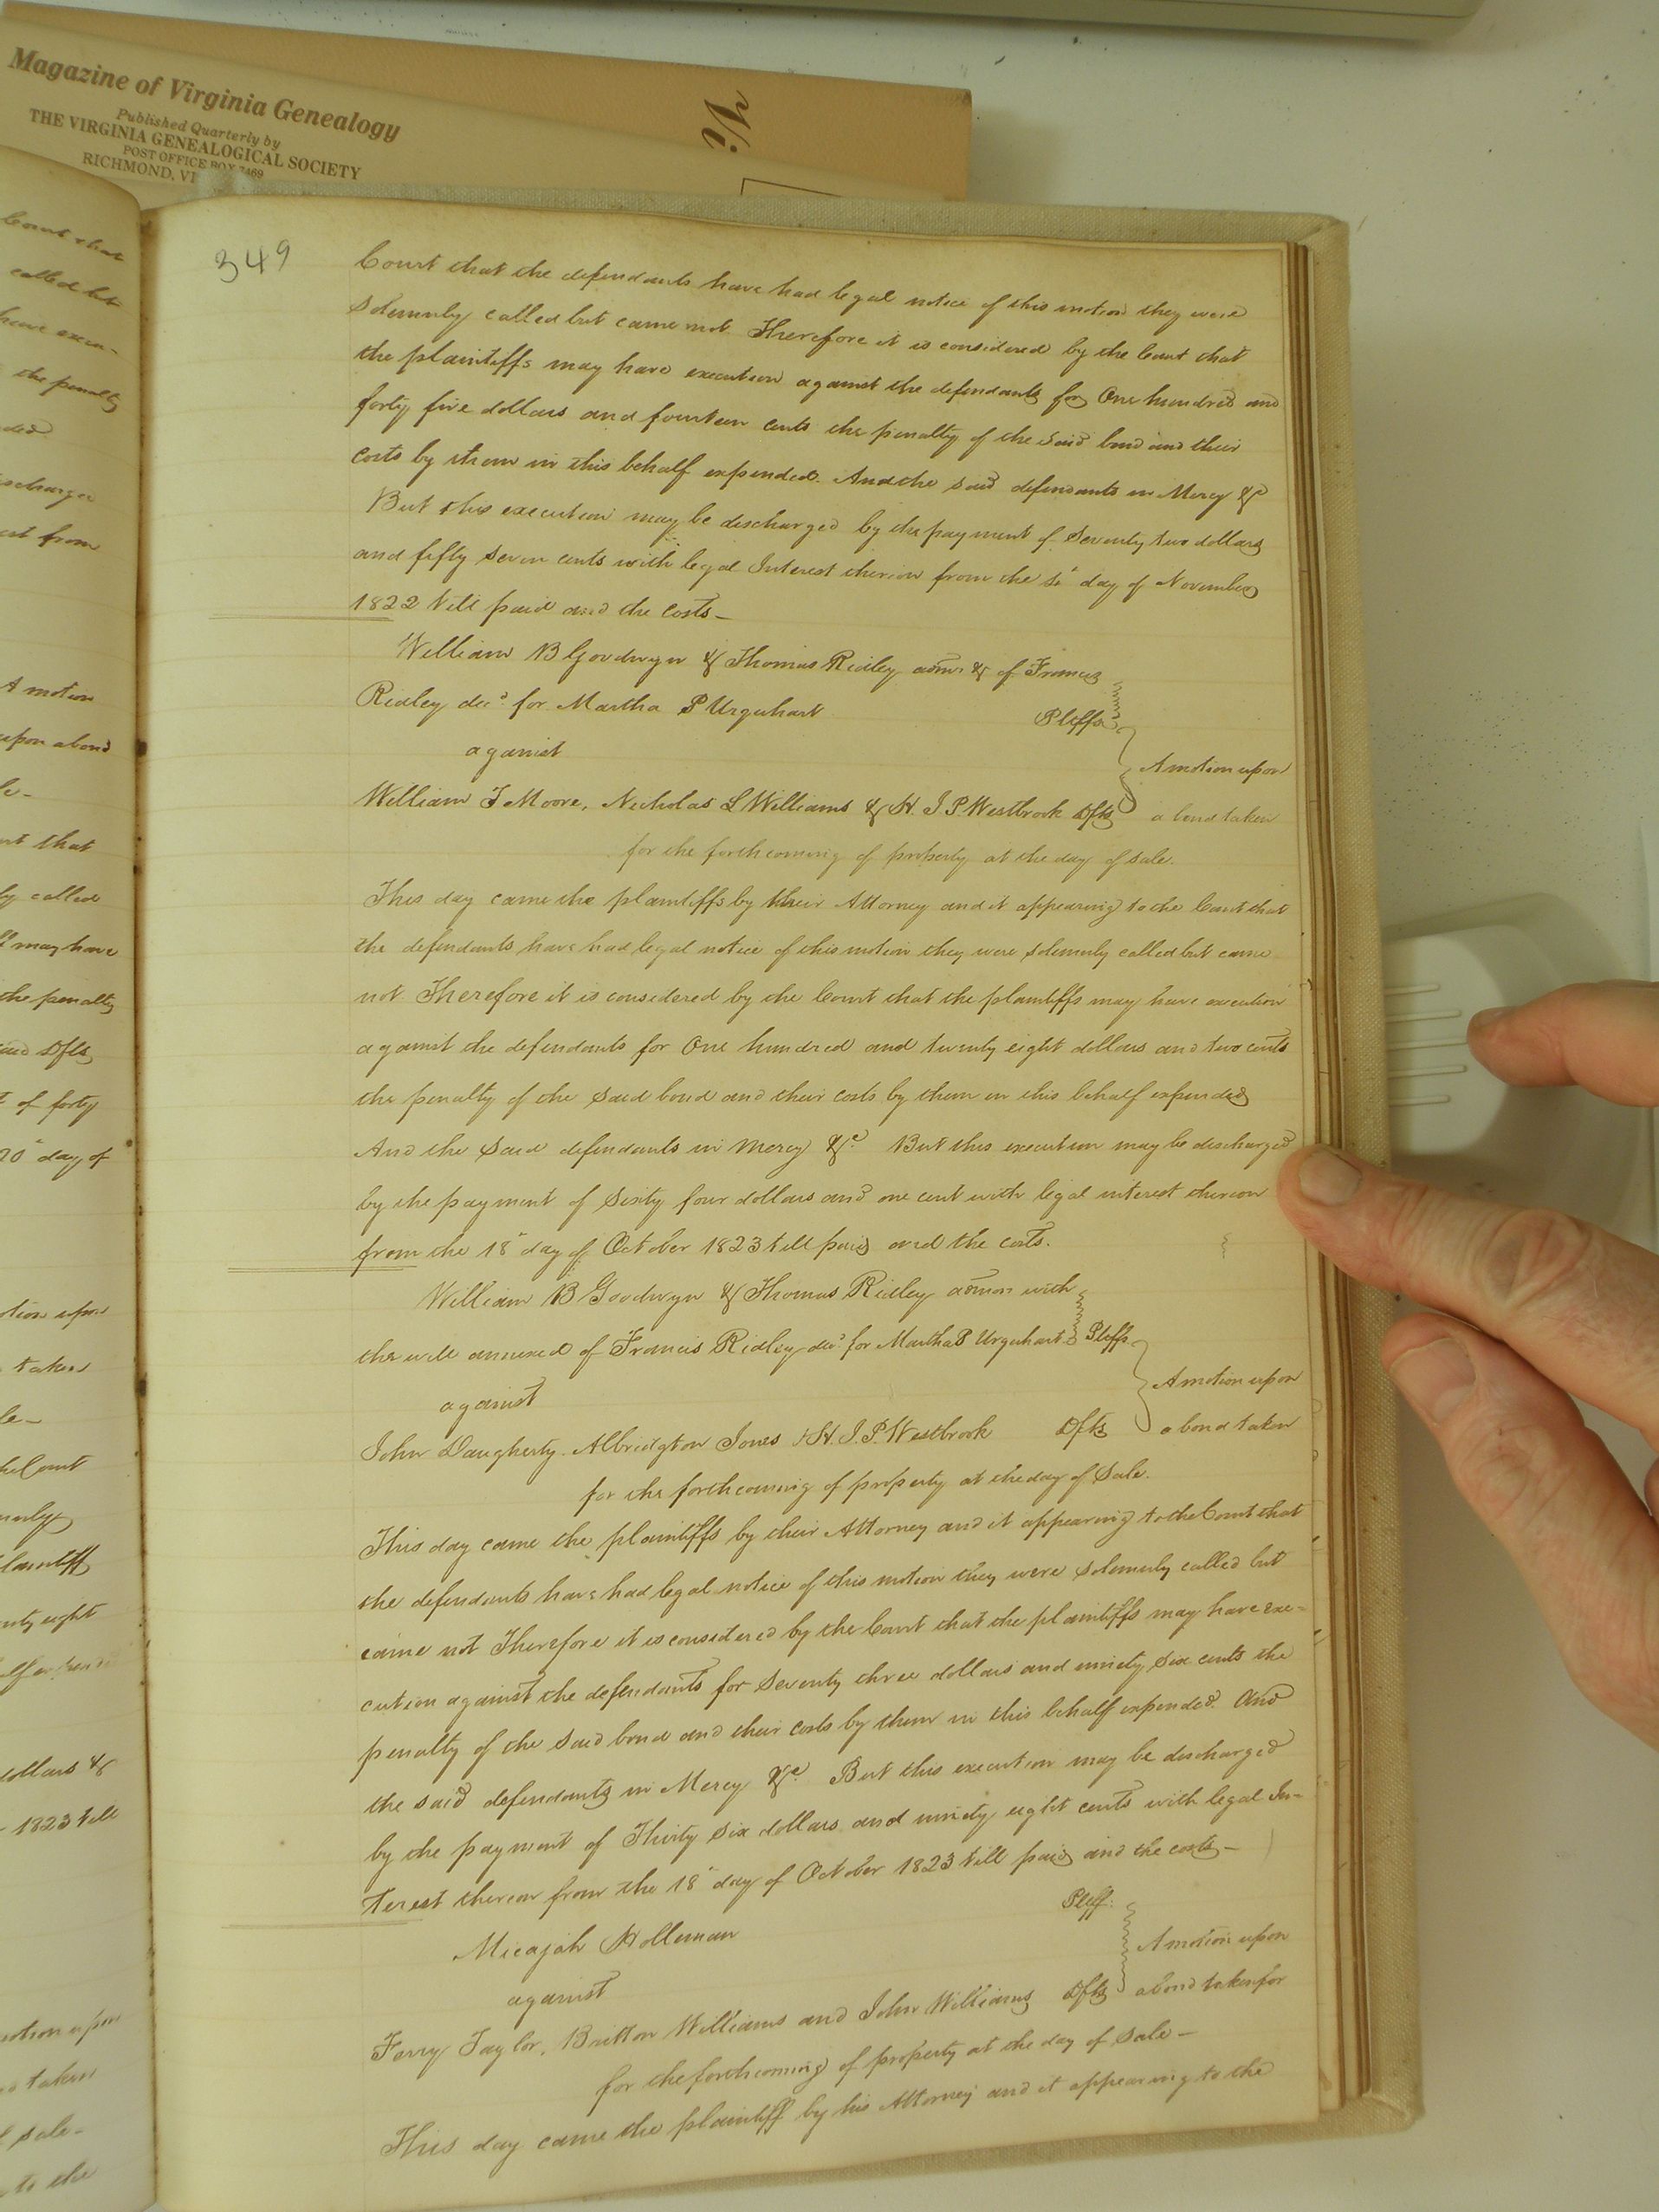 Magazine of Virginia Genealogy
Published Quarterly by
THE VIRGINIA GENEALOGICAL SOCIETY
POST OFFICE BOX 7469
RICHMOND, VI
349
Court that the defendants have had legal notice of this motion they were
Solemnly called but came not Therefore it is considered by the Court that
the plaintiffs may have execution against the defendants for One hundred and
forty five dollars and fourteen cents the penalty of the said bond and their
costs by them in this behalf expended. And the said defendants in Mercy &c
But this execution may be discharged by the payment of Seventy two dollars
and fifty seven cents with legal Interest thereon from the day of November
1822 till paid and the costs-
William B Goodwyn & Thomas Ridley admrs & of Francis
Ridley decd for Martha P Urquhart Pltffs
against A motion upon
William T Moore, Nicholas L Williams & H. J. P. Westbrook Dfts a bond taken
for the forthcoming of property at the day of sale.
This day came the plaintiffs by their Attorney and it appearing to the Court that
the defendants have had legal notice of this motion they were solemnly called but came
not Therefore it is considered by the Court that the plaintiffs may have execution
against the defendants for One hundred and twenty eight dollars and two cents
the penalty of the said bond and their costs by them in this behalf expended
And the said defendants in mercy &c. But this execution may be discharged
by the payment of Sixty four dollars and one cent with legal interest thereon
from the 18" day of October 1823 till paid and the costs.
William B Goodwyn & Thomas Ridley admon with
the will annexed of Francis Ridley decd for Martha P Urquhart Pltffs
against A motion upon
John Daugherty. Albridgton Jones & H. J. P. Westbrook Dfts a bond taken
for the forthcoming of property at the day of Sale.
This day came the plaintiffs by their Attorney and it appearing to the Court that
the defendants have had legal notice of this motion they were solemnly called but
came not Therefore it is considered by the Court that the plaintiffs may have exe=
cution against the defendants for Seventy three dollars and ninety six cents the
penalty of the said bond and their costs by them in this behalf expended. And
the said defendants in Mercy &c. But this execution may be discharged
by the payment of Thirty six dollars and ninety eight cents with legal In=
terest thereon from the 18" day of October 1823 till paid and the costs-
Micajah Holleman Pltff.
against A motion upon
Taylor, Britton Williams and John Williams Dfts a bond taken for
for the forthcoming of property at the day of Sale-
This day came the plaintiff by his Attorney and it appearing to the